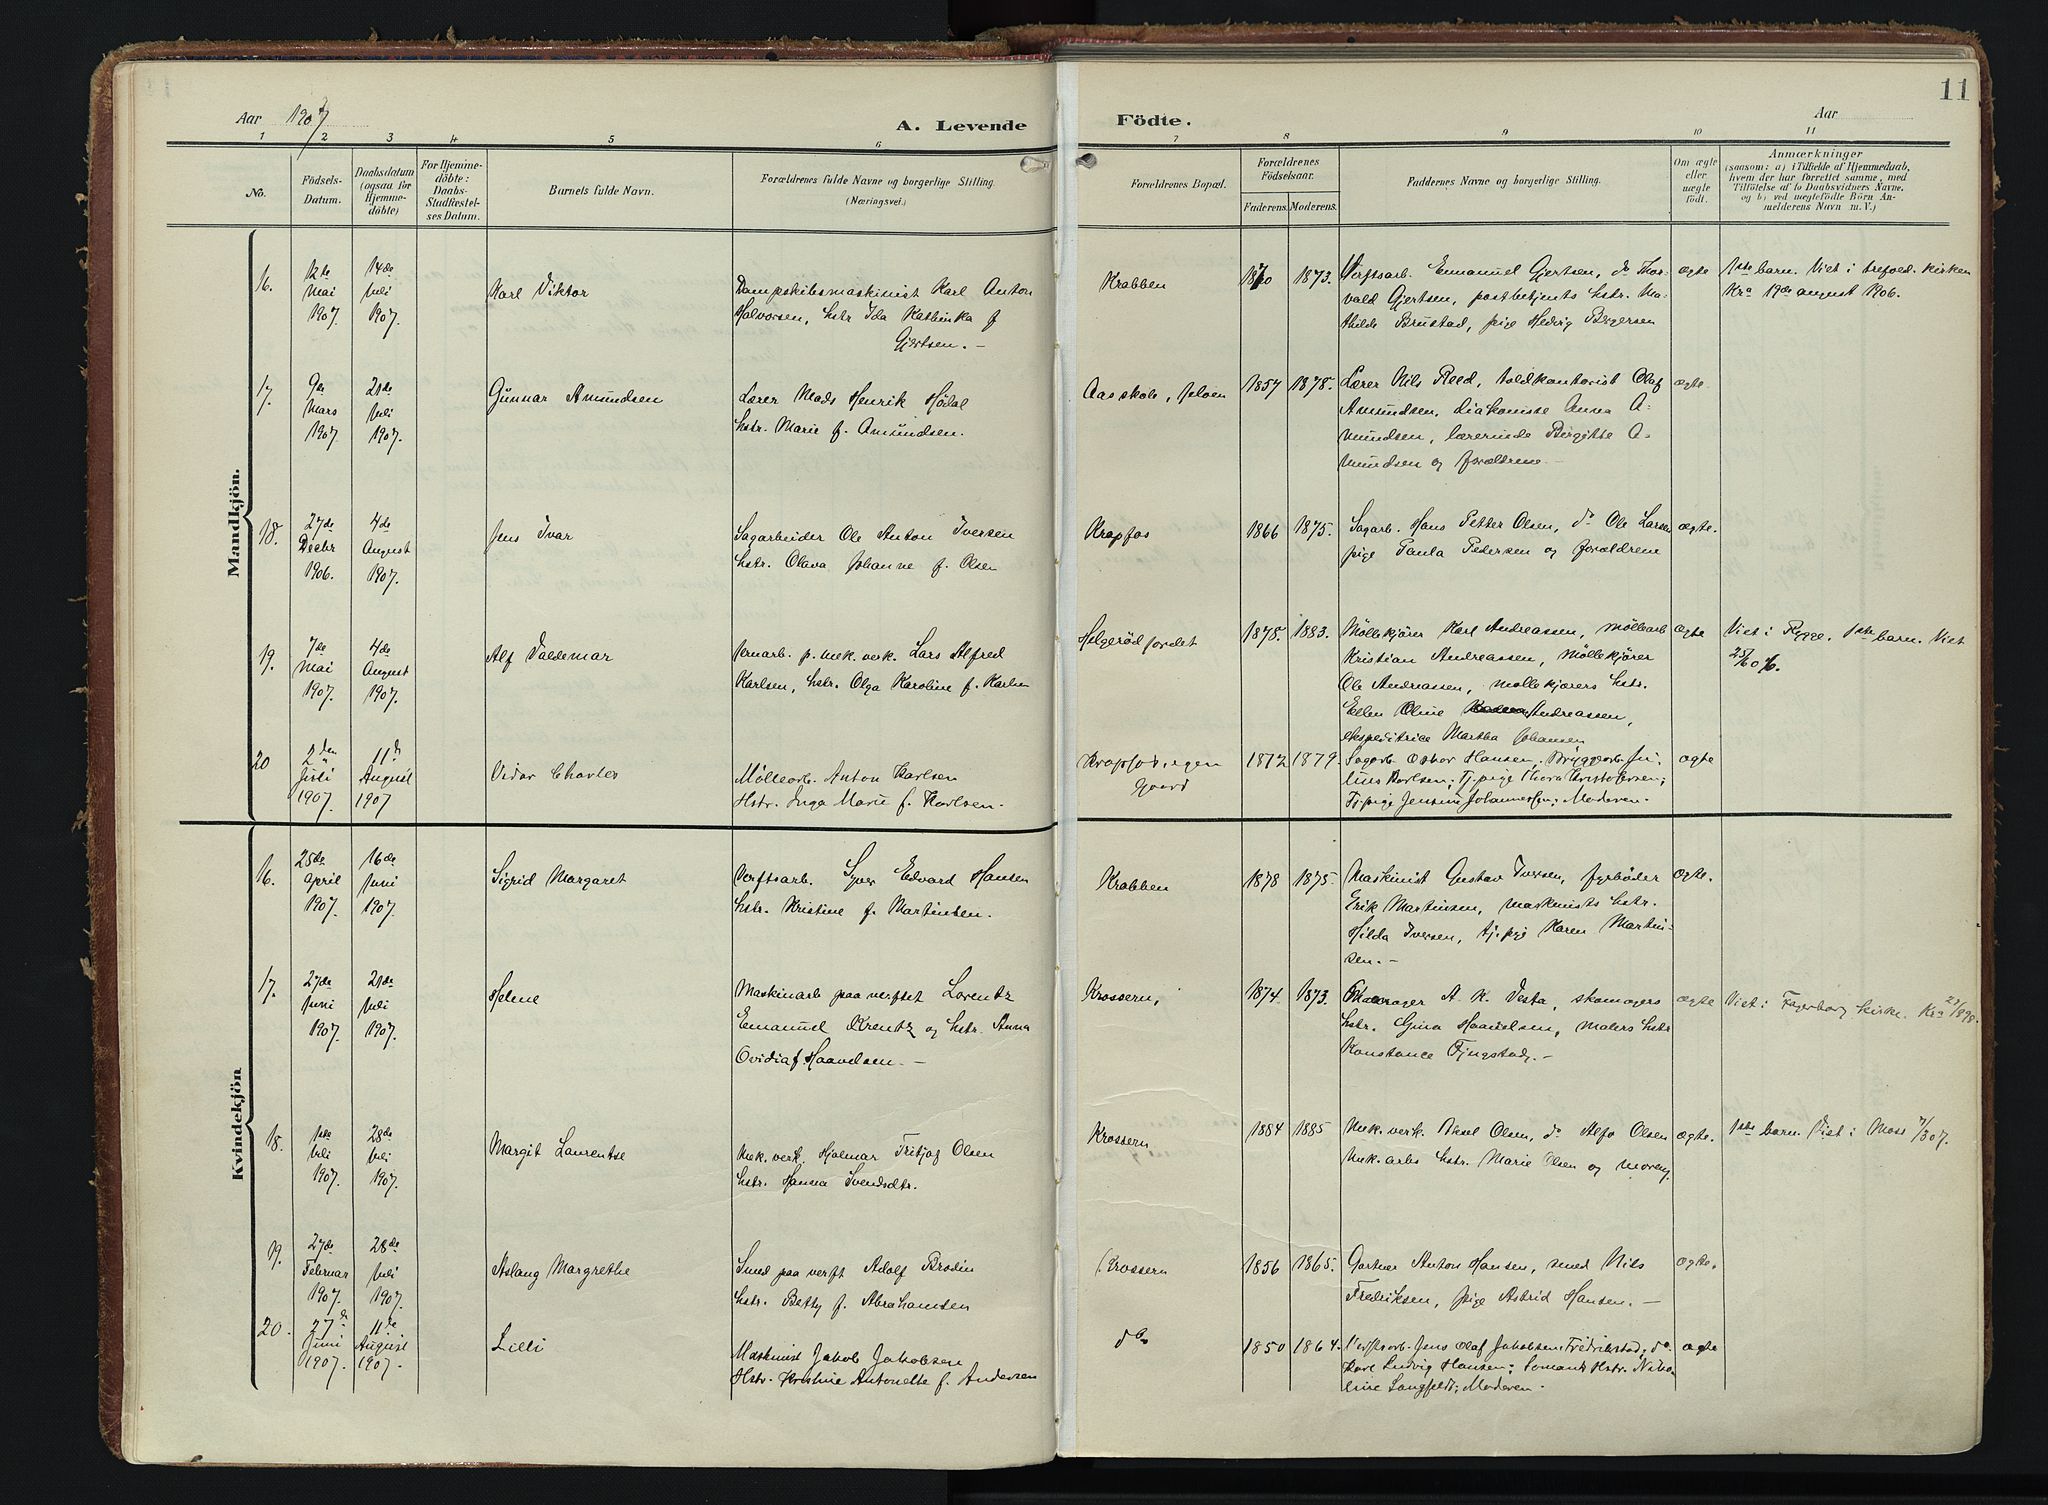 11
Aar 1907
A. Levende Födte.
Aar
1 2 3 4 5 6 7 8 9 10 11
No.
Födsels-
Datum.
Daabsdatum
(ogsaa for
Hjemme-
döbte)
For Hjemme-
döbte:
Daabs-
Stadfæstel-
ses Datum.
Barnets fulde Navn.
Forældrenes fulde Navne og borgerlige Stilling.
(Næringsvei.)
Forældrenes Bopæl.
Forældrenes
Födselsaar.
Faderens. Moderens.
Faddernes Navne og borgerlige Stilling.
Om ægte
eller
uægte
födt.
Anmærkninger
(saasom: a) i Tilfælde af Hjemmedaab,
hvem der har forrettet samme, med
Tilföielse af to Daabsvidners Navne,
og b) ved uægtefödte Börn An-
melderens Navn m. V.)
Mandkjön.
16.
12te
Mai
1907.
14de
Juli
1907.
Karl Viktor
Dampskibsmaskinist Karl Anton
Halvorsen, hstr Ida Kathinka f
Gjertsen. –
Krabben
1870 1873.
Verftsarb. Emanuel Gjertsen, do Thor-
vald Gjertsen, postbetjents hstr. Ma-
thilde Brustad, pige Hedvig Bergersen
ægte
1ste barn. Viet i trefold. kirken
Kra 19de august 1906.
17.
9de
Mars
1907.
21de
Juli
1907.
Gunnar Amundsen
Lærer Mads Henrik Hödal
hstr. Marie f. Amundsen.
Aas skole, Jeløen
1857 1878.
Lærer Nils Reed, toldkontorist Olaf
Amundsen, diakonisse Anna A-
mundsen, lærerinde Birgitte A-
mundsen og forældrene –
ægte.
18.
27de
Decbr
1906.
4de
August
1907.
Jens Ivar
Sagarbeider Ole Anton Iversen
hstr. Olava Johanne f. Olsen
Krapfos
1866 1875.
Sagarb. Hans Petter Olsen, do Ole Larsen
pige Paula Pedersen og forældrene
ægte.
19.
7de
Mai
1907.
4de
August
1907.
Alf Valdemar
Jernarb. p. mek. verk. Lars Alfred
Karlsen, hstr. Olga Karoline f. Karlsen
Helgerödfordet
1878. 1883.
Møllekjører Karl Andreassen, Møllearb
Kristian Andreassen, Møllekjører
Ole Andreassen, møllekjørers hstr.
Ellen Oline Andreassen,
ekspeditrice Martha Johansen
ægte
Viet i Rygge. 1ste barn. Viet
20
2den
Juli
1907.
11de
August
1907
Vidar Charles
Mölleorb. Anton Karlsen
Hstr. Inga Marie f. Karlsen.
Krapfos, egen
Gaard
1872 1879.
Sagarb. Oskar Hansen, Bryggearb. Ju-
lius Karlsen; Tj.pige Thora Kristoffersen;
Tj.pige Jensine Johannessen; Moderen.
ægte
Kvindekjön
16.
25de
April
1907.
16de
Juni
1907.
Sigrid Margaret
Verftsarb. Syver Edvard Hansen
hstr. Kristine f. Martinsen.
Krabben
1878 1875.
Maskinist Gustav Iversen, fyrbøder
Erik Martinsen, maskinists hstr.
Hilda Iversen, tj.pige Karen Martin-
sen. –
ægte.
17.
27de
Juni
1907.
21de
Juli
1907.
Helene
Maskinarb paa verftet Lorentz
Emanuel Krentz og hstr. Anna
Ovidia f. Haavelsen. –
Krossern,
1874. 1873.
Skomager A. K. Vesta, skomagers
hstr. Gina Haavelsen, malers hstr
Konstance Fjugstad. –
ægte
Viet i Fagerborg kirke. Kra
18.
1ste
Juli
1907.
28de
Juli
1907.
Margit Laurentse
Mek. verk. Hjalmar Fritjof Olsen
hstr. Hanna Svendsdtr.
Krossern
1884 1885
Mek. verk. Aksel Olsen, do. Alfo Olsen
Mek. arbs hstr. Marie Olsen og moren.
ægte.
1ste barn. Viet i Moss 7/3 07.
19.
27de
Februar
1907.
28de
Juli
1907.
Aslaug Margrethe
Smed paa verft Adolf Brodin
hstr. Betty f. Abrahamsen
Krossern
1856 1865.
Gartner Anton Hansen, smed Nils
Fredriksen, pige Astrid Hansen. –
ægte.
20.
27de
Juni
1907.
11de
August
1907.
Lilli
Maskinist Jakob Jakobsen
Hstr. Kristine Antonette f. Andersen
do
1850 1864.
Verftsarb. Jens Olaf Jakobsen, Fredrikstad; do.
Karl Ludvig Hansen; Sömands Hstr. Niko-
line Langfeldt; Moderen.
ægte